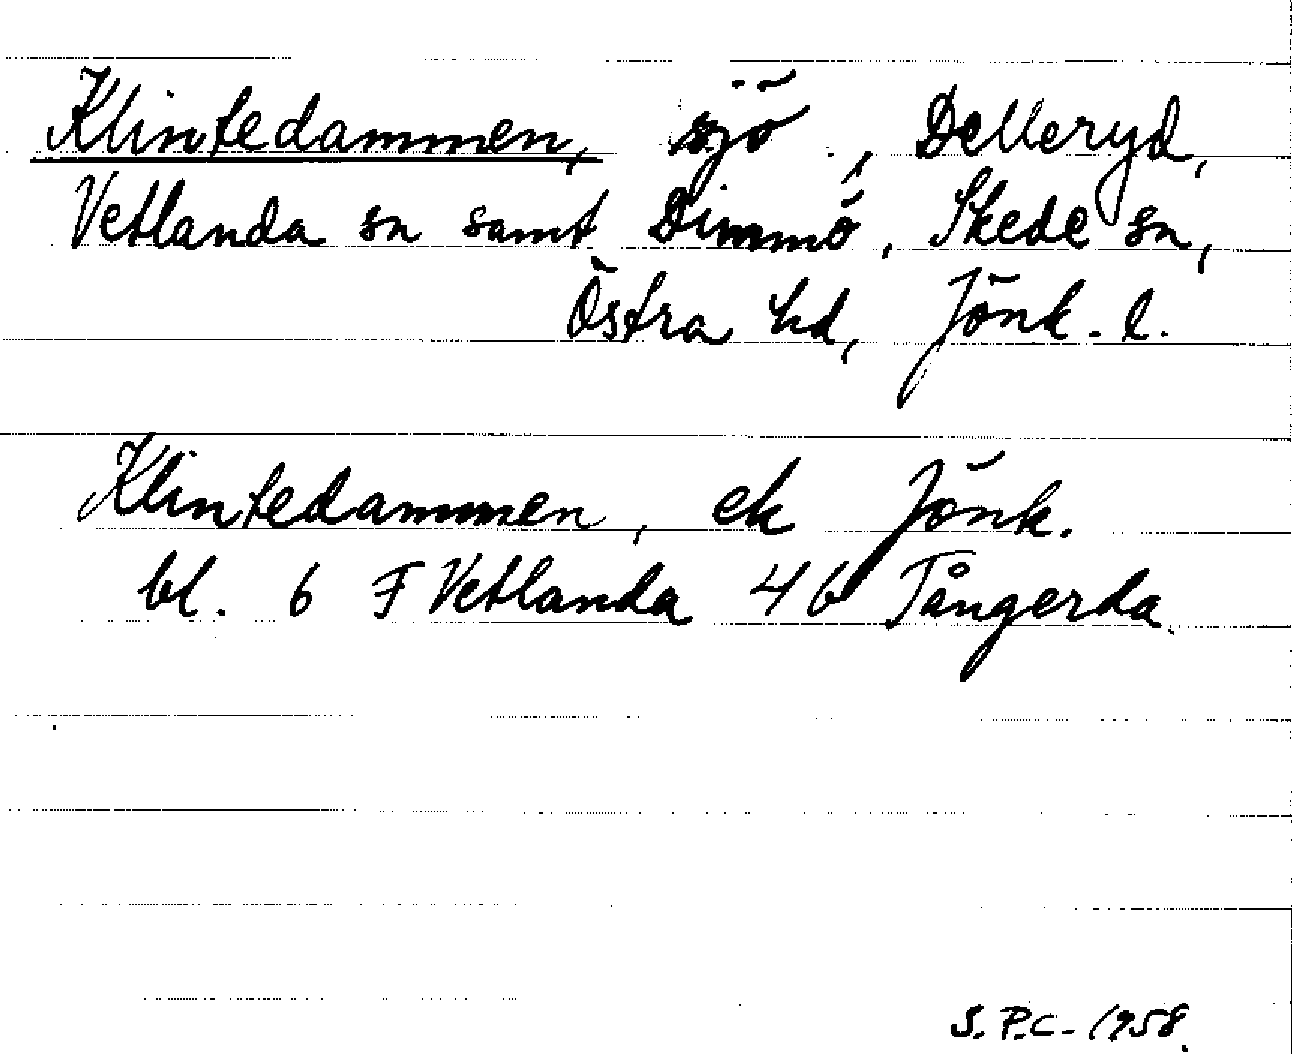 Klintedammen, sjö, Delleryd,
Vetlanda sn samt Dimmö, Skede sn,
Östra hd, Jönk. l.
Klintedammen, ek Jönk.
bl. 6 F Vetlanda 4 b Tångerda
S.P.C. 1958.